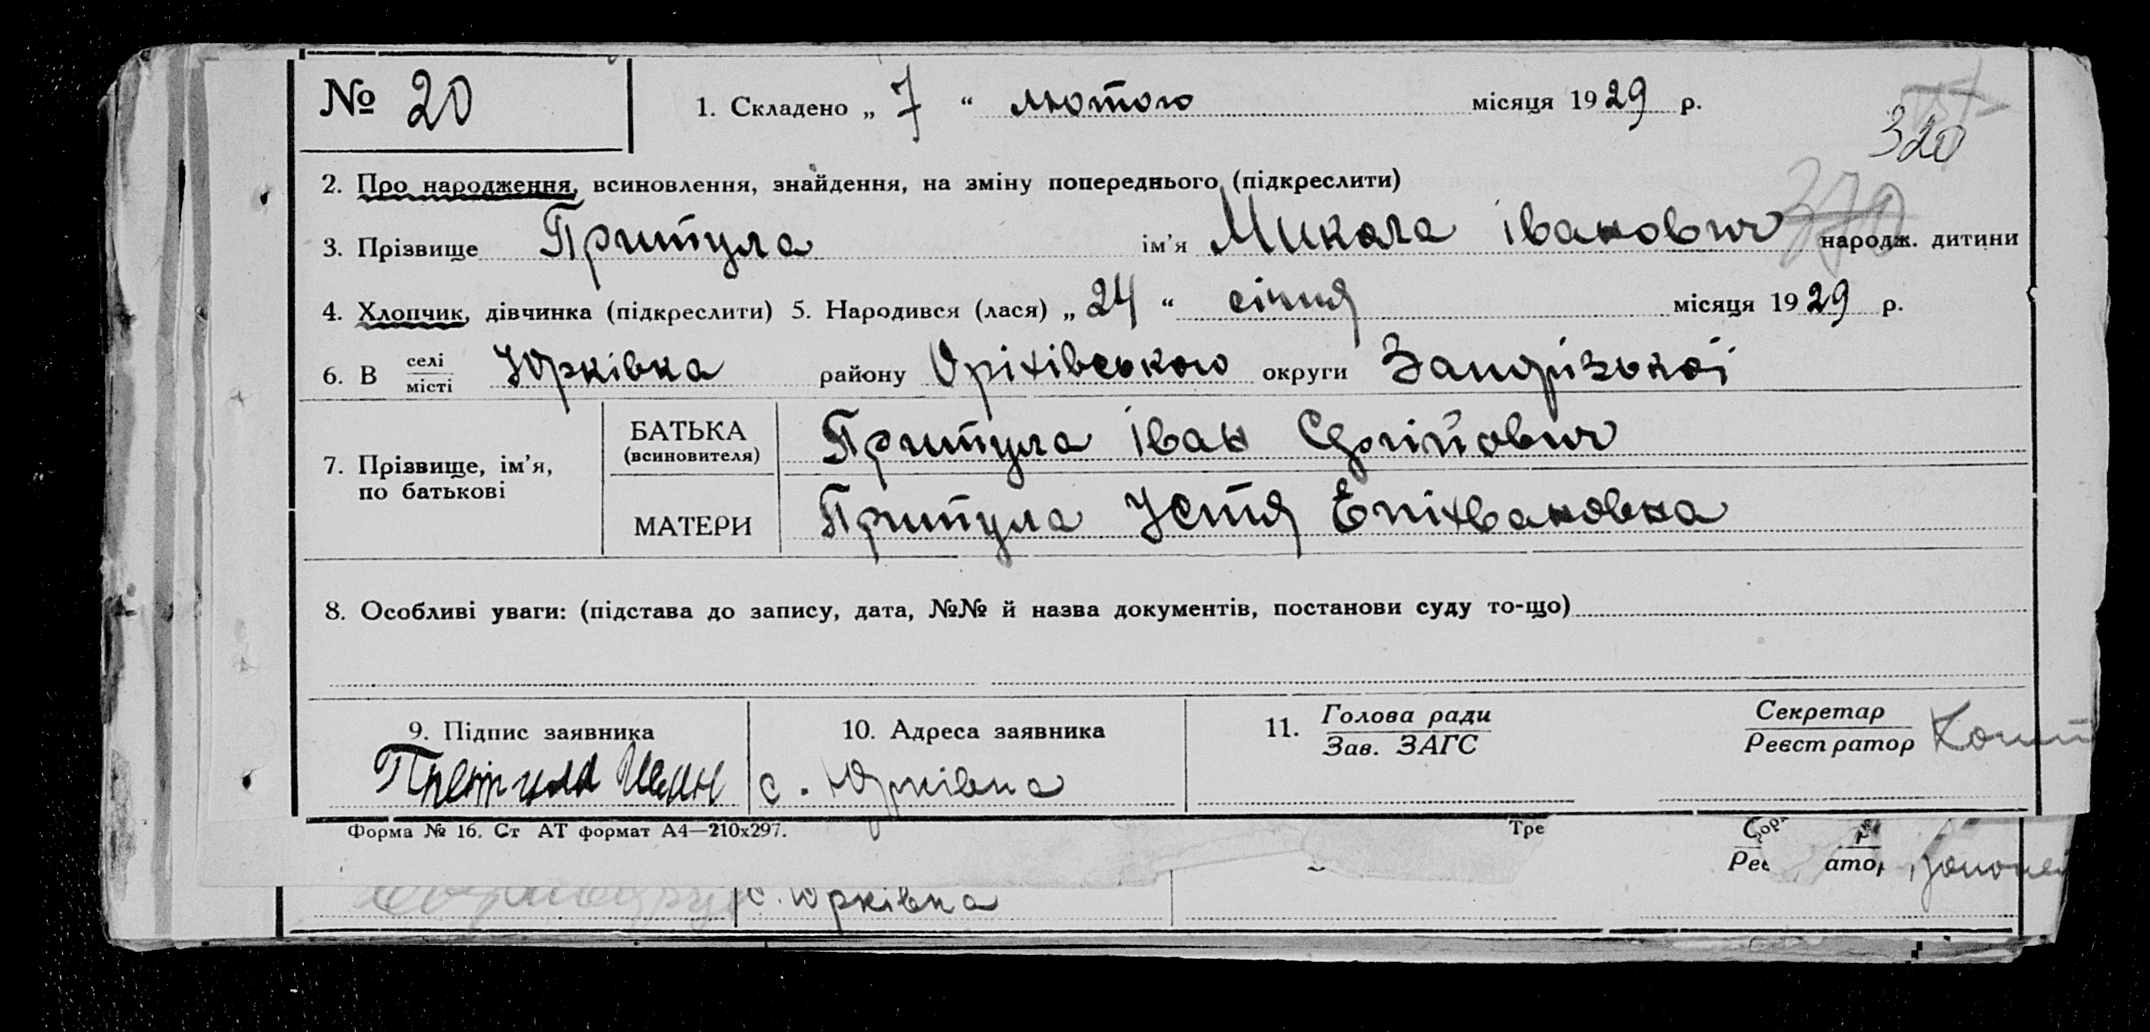 № 20
1. Складено „ 7 “ лютого місяця 1929 р.
320
2. Про народження, всиновлення, знайдення, на зміну попереднього (підкреслити)
370
3. Прізвище Притула ім’я Микола Іванович народж. дитини
4. Хлопчик, дівчинка (підкреслити) 5. Народився (лася) „ 24 “ січня місяця 1929 р.
6. В селі місті Юрківка району Оріхівського округи Запорізької
7. Прізвище, ім’я, по батькові
БАТЬКА (всиновителя) Притула Іван Сргійович
МАТЕРИ Притула Устя Епіхвановна
8. Особливі уваги: (підстава до запису, дата, №№ й назва документів, постанови суду то-що)
9. Підпис заявника
Притула Иван
10. Адреса заявника
с. Юрківка
11. Голова ради
Зав. ЗАГС
Секретар
Реєстратор
Форма № 16. Ст АТ формат А4—210х297.
Тре
Реє атор
с. Юрківка